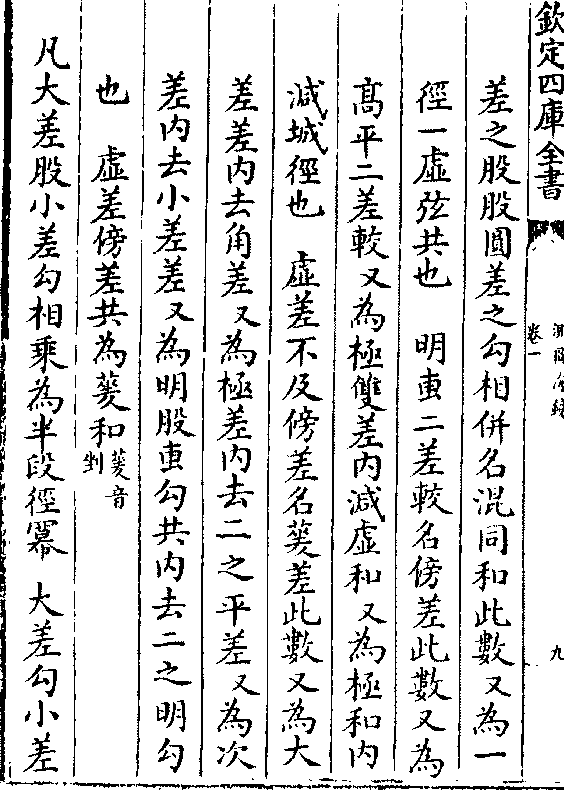 欽定四庫全書
測圓海鏡
卷一
九
差之股股圓差之勾相併名混同和此數又為一
徑一虛弦共也　明叀二差較名傍差此數又為
髙平二差較又為極雙差内減虛和又為極和内
減城徑也　虛差不及傍差名蓌差此數又為大
差差内去角差又為極差内去二之平差又為次
差内去小差差又為明股叀勾共内去二之明勾
也　虛差傍差共為蓌和蓌音剉
凡大差股小差勾相乘為半段徑冪　大差勾小差